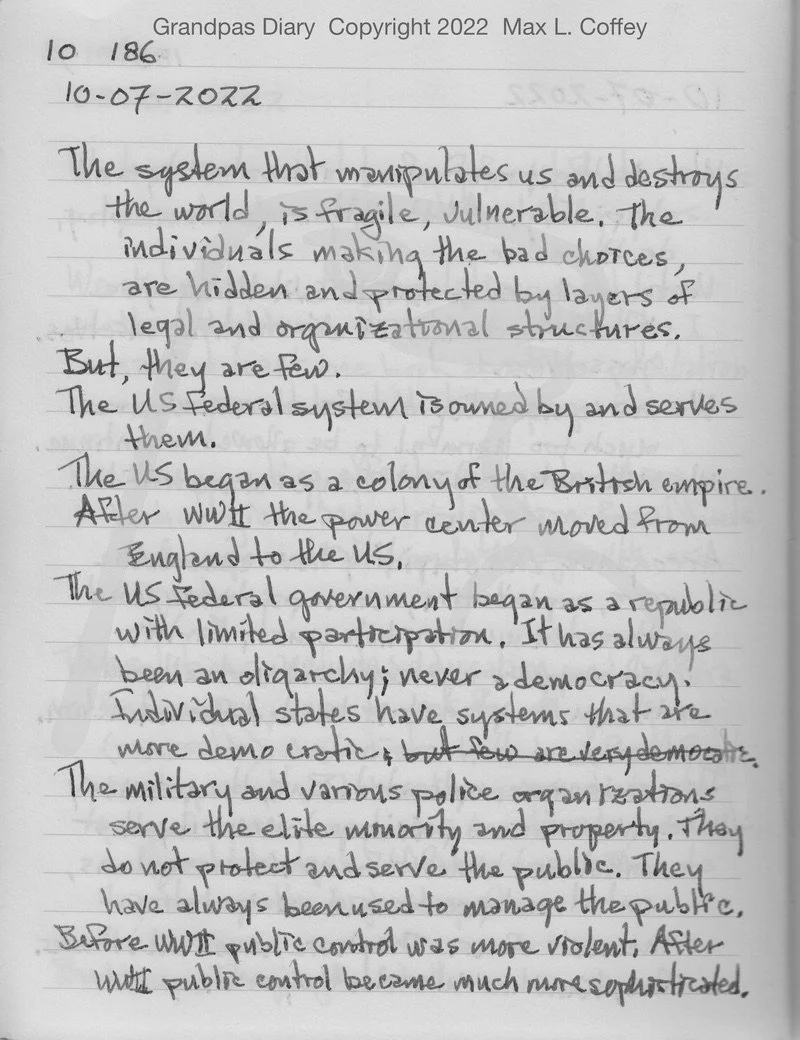 Grandpas Diary Copyright 2022 Max L. Coffey
10 186
10-07-2022
The system that manipulates us and destroys
the world, is fragile, vulnerable. The
individuals making the bad choices,
are hidden and protected by layers of
legal and organizational structures.
But, they are few.
The US Federal system is owned by and serves
them.
The US began as a colony of the British empire.
After WWII the power center moved from
England to the US.
The US Federal government began as a republic
with limited participation. It has always
been an oligarchy; never a democracy.
Individual states have systems that are
more democratic; but few are very democratic.
The military and various police organizations
serve the elite minority and property. They
do not protect and serve the public. They
have always been used to manage the public.
Before WWII public control was more violent. After
WWII public control became much more sophisticated.